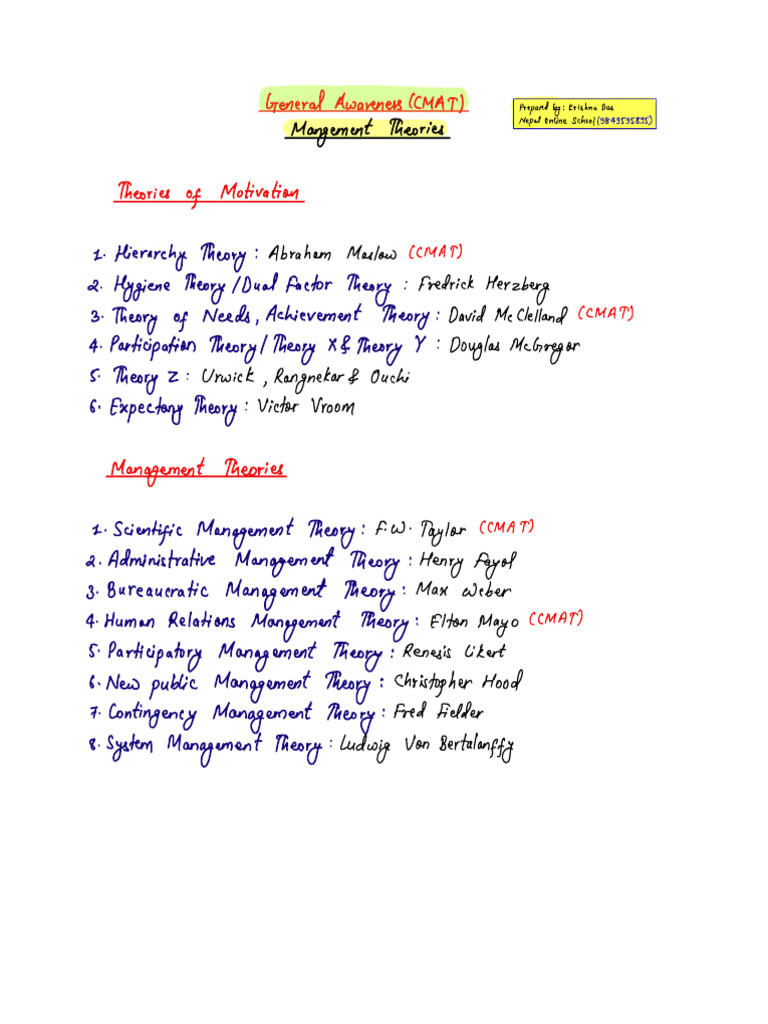 General Awareness (CMAT)
Mangement Theories
Prepared by: Krishna Das
Nepal Online School (9843595895)
Theories of Motivation
1. Hierarchy Theory : Abraham Maslow (CMAT)
2. Hygiene Theory / Dual Factor Theory : Fredrick Herzberg
3. Theory of Needs, Achievement Theory : David McClelland (CMAT)
4. Participation Theory / Theory X & Theory Y : Douglas McGregor
5. Theory Z : Urwick, Rangnekar & Ouchi
6. Expectany Theory : Victor Vroom
Management Theories
1. Scientific Management Theory : F.W. Taylor (CMAT)
2. Administrative Management Theory : Henry Fayol
3. Bureaucratic Management Theory : Max Weber
4. Human Relations Management Theory : Elton Mayo (CMAT)
5. Participatory Management Theory : Renesis Likert
6. New public Management Theory : Christopher Hood
7. Contingency Management Theory : Fred Fielder
8. System Management Theory : Ludwig Von Bertalanffy